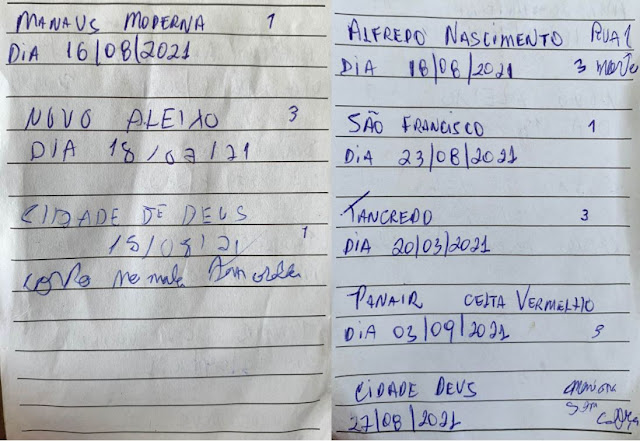 MANAUS MODERNA 1
DIA 16/08/2021
NOVO ALEIXO 3
DIA 18/07/21
CIDADE DE DEUS
15/08/21 1
ALFREDO NASCIMENTO RUA 1
DIA 18/08/2021 3 morte
SÃO FRANCISCO 1
DIA 23/08/2021
TANCREDO 3
DIA 20/03/2021
PANAIR CELTA VERMELHO
DIA 03/09/2021
CIDADE DEUS
27/08/2021